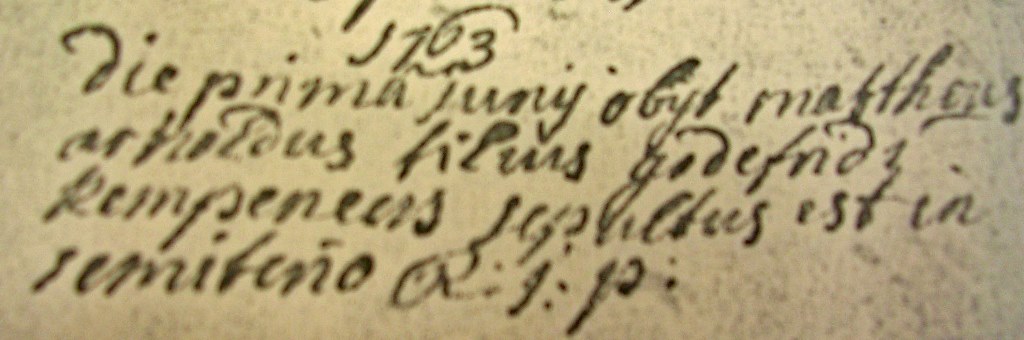 1763
Die prima junij obijt mattheus
arnoldus filius godefridi
kempeneers sepultus est in
semiterio R: j: p: